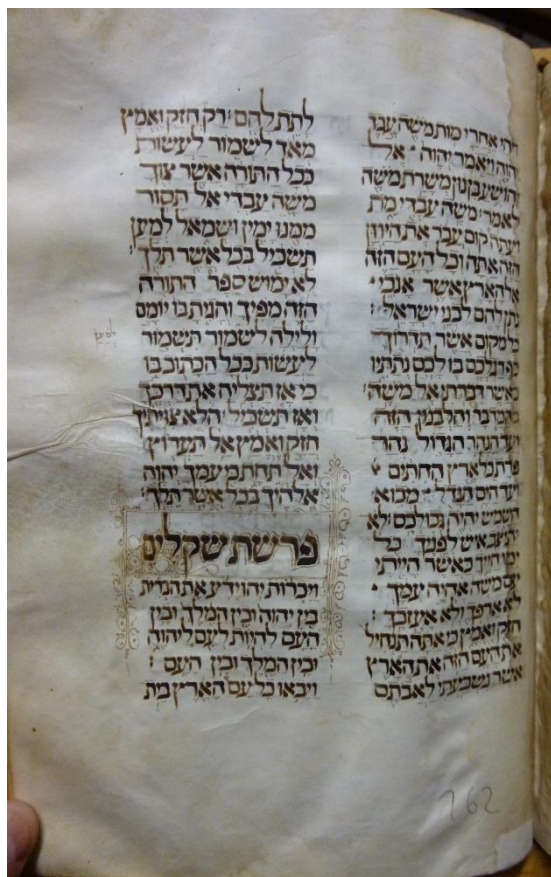 ויהי אחרי מות משה עבד
יהוה ויאמר יהוה אל
יהושע בן נון משרת משה
לאמר משה עבדי מת
ועתה קום עבר את הירדן
הזה אתה וכל העם הזה
אל הארץ אשר אנכי
נתן להם לבני ישראל :
כל מקום אשר תדרוך
כף רגלכם בו לכם נתתיו
כאשר דברתי אל משה
מהמדבר והלבנון הזה
ועד הנהר הגדול נהר
פרת כל ארץ החתים
ועד הים הגדל מבוא
השמש יהיה גבולכם לא
יתיצב איש לפניך כל
ימי חייך כאשר הייתי
עם משה אהיה עמך
לא ארפך ולא אעזבך :
חזק ואמץ כי אתה תנחיל
את העם הזה את הארץ
אשר נשבעתי לאבתם
לתת להם רק חזק ואמץ
מאד לשמור לעשות
ככל התורה אשר צוך
משה עבדי אל תסור
ממנו ימין ושמאל למען
תשכיל בכל אשר תלך
לא ימוש ספר התורה
הזה מפיך והגית בו יומם
ולילה לשמור תשמור
לעשות ככל הכתוב בו
כי אז תצליח את דרכך
ואז תשכיל הלא צויתיך
חזק ואמץ אל תערוץ
ואל תחת כי עמך יהוה
אלהיך בכל אשר תלך
פרשת שקלים
ויכרות יהוידע את הברית
בין יהוה ובין המלך ובין
העם להיות לעם ליהוה
ובין המלך ובין העם :
ויבאו כל עם הארץ בית
162